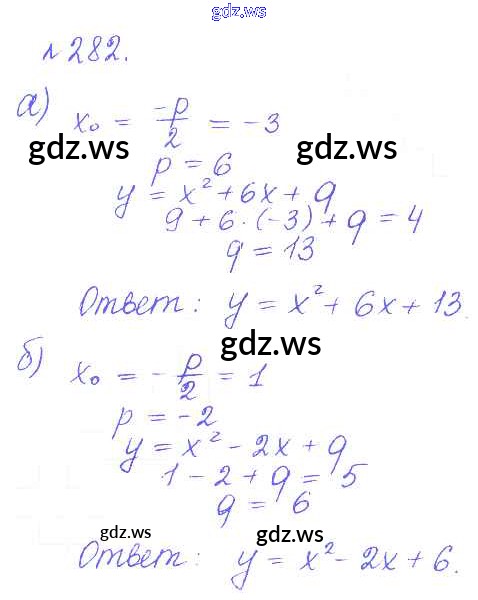 gdz.ws
№ 282.
а) x₀ = -p/2 = -3
gdz.ws gdz.ws
p = 6
y = x² + 6x + q
9 + 6·(-3) + q = 4
q = 13
Ответ: y = x² + 6x + 13.
gdz.ws
б) x₀ = -p/2 = 1
p = -2
y = x² - 2x + q
1 - 2 + q = 5
q = 6
gdz.ws gdz.ws
Ответ: y = x² - 2x + 6.